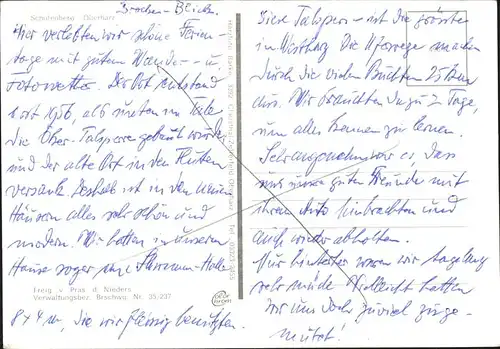 Schulenberg Oberharz
Brocken-Blick.
Hier verlebten wir schöne Ferien-
tage mit gutem Wander- u.
Fotowetter. Der Ort entstand
erst 1956, als unten im Tale
die Oker-Talsperre gebaut wurde
und der alte Ort in den Fluten
versank. Deshalb ist in den neuen
Häusern alles sehr schön und
modern. Wir hatten in unserem
Hause sogar eine Schwimm-Halle
8x4 m, die wir fleissig benutzten.
Freig. v. Präs. d. Nieders
Verwaltungsbez. Brschwg. Nr. 35/237
Diese Talsperre - ist die grösste
im Westharz. Die Uferwege machen
durch die vielen Buchten 25 km
aus. Wir brauchten dazu 2 Tage,
um alles kennen zu lernen.
Sehr angenehm war es, dass
uns unsere guten Freunde mit
ihrem Auto hinbrachten und
auch wieder abholten.
Nur hinterher waren wir tagelang
sehr müde. Vielleicht hatten
wir uns doch zuviel zuge-
mutet!